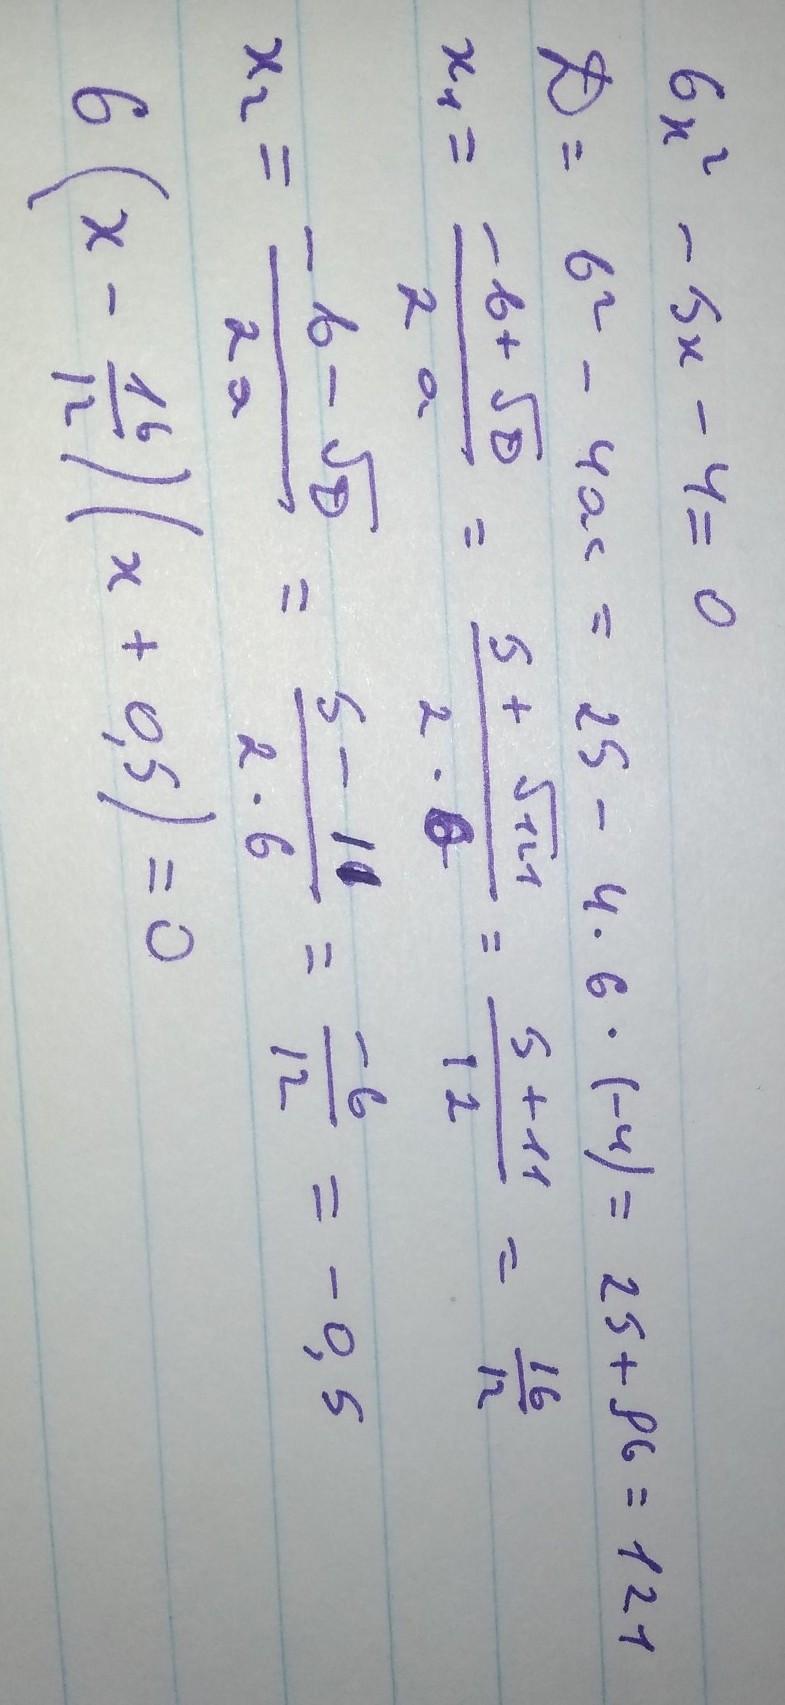 6x² - 5x - 4 = 0
D = b² - 4ac = 25 - 4·6·(-4) = 25 + 96 = 121
x₁ = (-b + √D)/(2a) = (5 + √121)/(2·6) = (5 + 11)/12 = 16/12
x₂ = (-b - √D)/(2a) = (5 - 11)/(2·6) = -6/12 = -0,5
6(x - 16/12)(x + 0,5) = 0